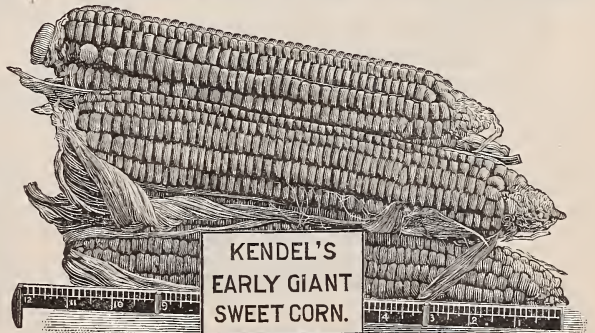 KENDEL'S
EARLY GIANT
SWEET CORN.
12 11 10 9 4 3 2 1